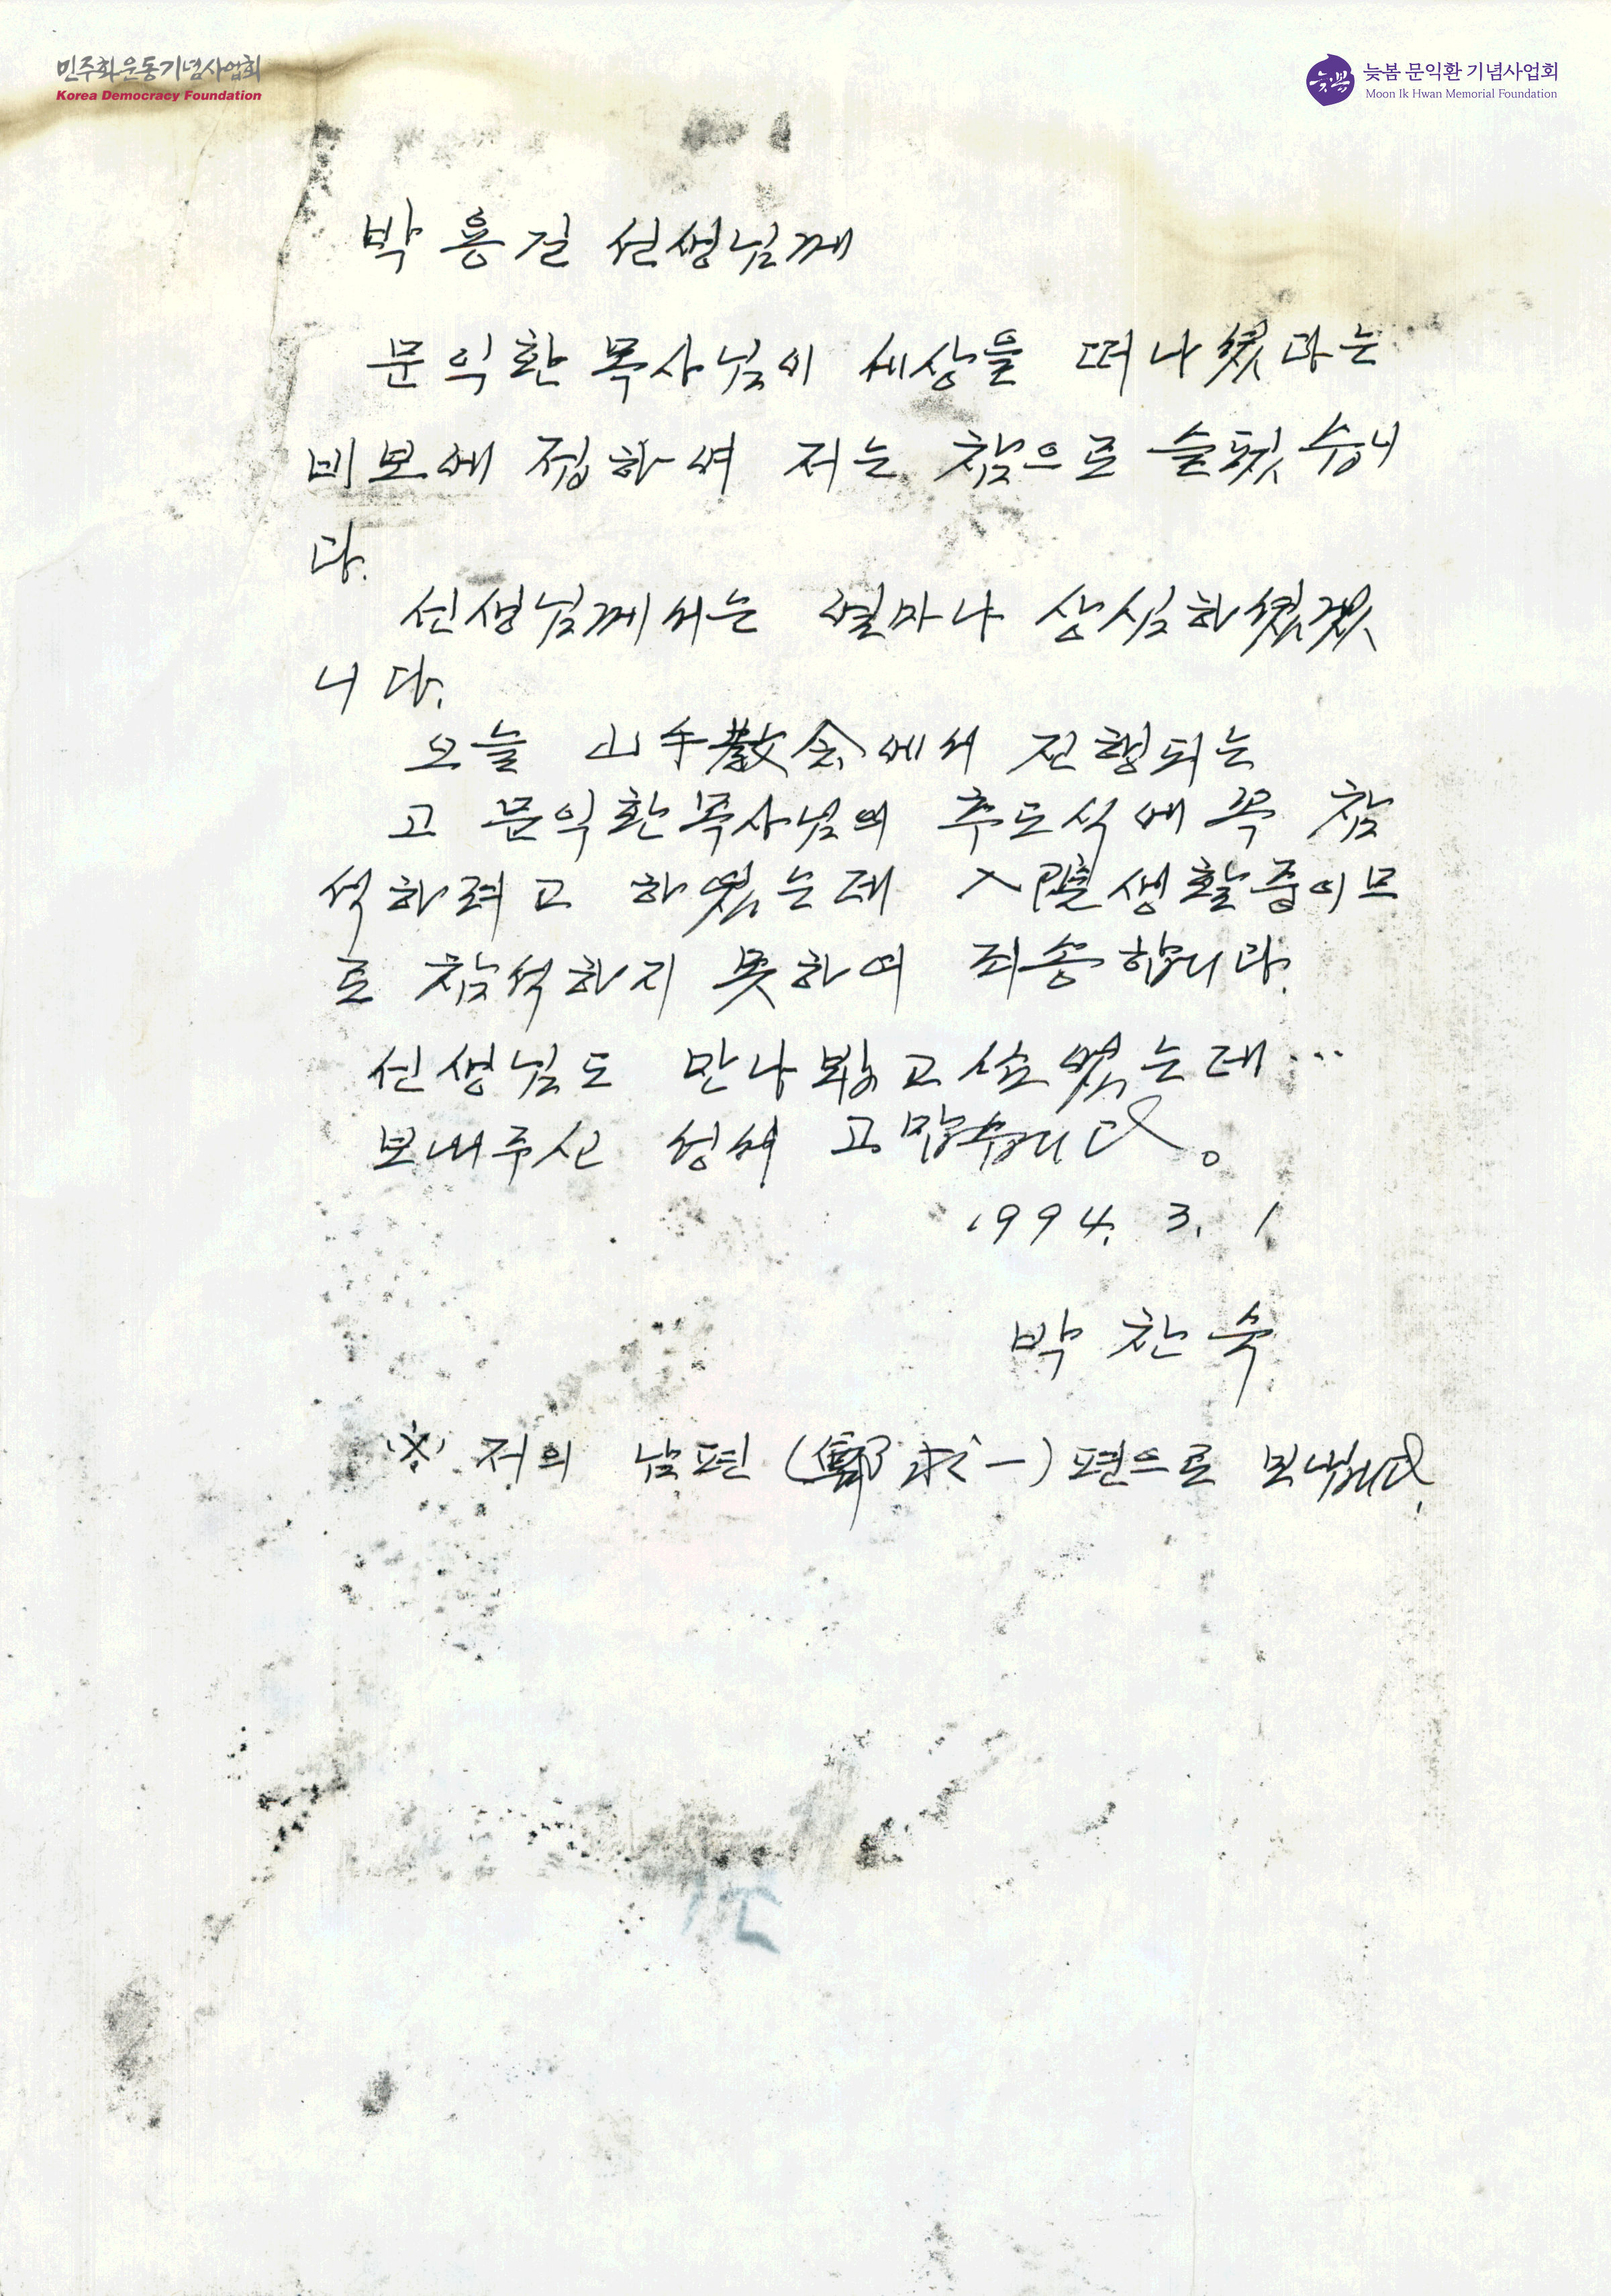 민주화운동기념사업회
Korea Democracy Foundation
늦봄
늦봄 문익환 기념사업회
Moon Ik Hwan Memorial Foundation
박용길 선생님께
문익환목사님이 세상을 떠나셨다는
비보에 접하여 저는 참으로 슬펐습니
다.
선생님께서는 얼마나 상심하셨겠
니다.
오늘 山手敎会에서 진행되는
고 문익환목사님의 추도식에 꼭 참
석하려고 하였는데 入院생활중이므
로 참석하지 못하여 죄송합니다.
선생님도 만나뵙고 싶었는데…
보내주신 성서 고맙습니다。
1994. 3. 1
박찬숙
※ 저의 남편 (鄭 一) 편으로 보냅니다.